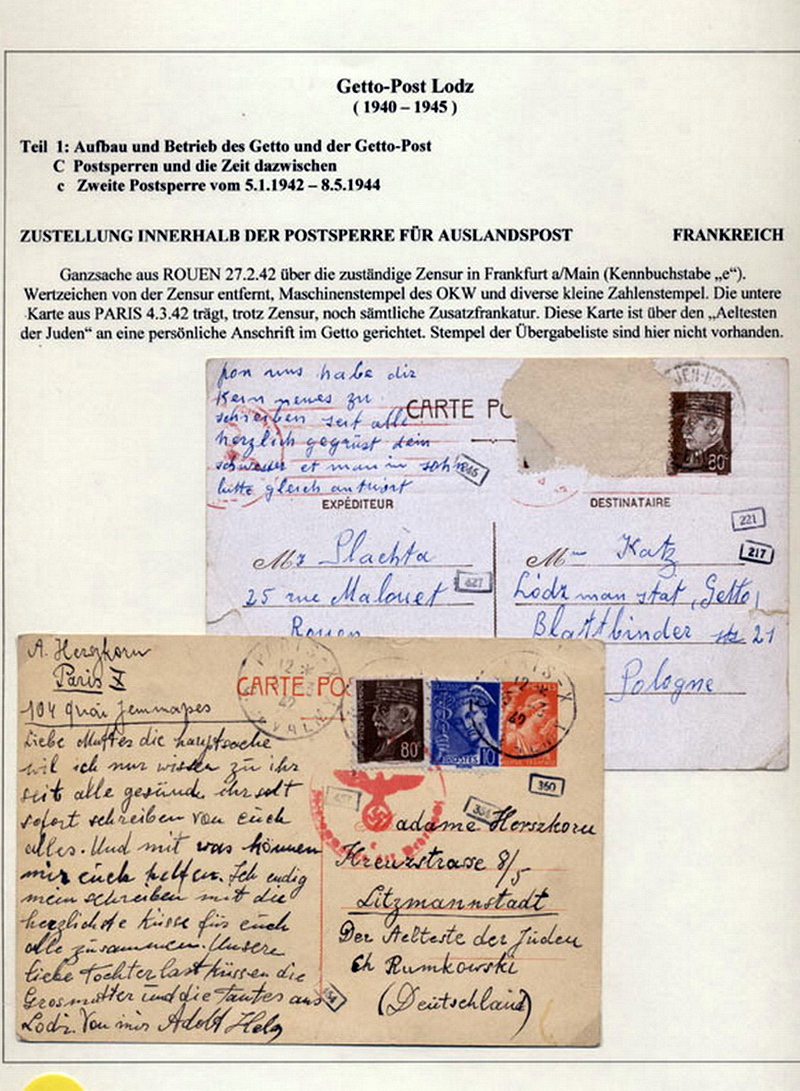 Getto-Post Lodz
( 1940 – 1945 )
Teil 1: Aufbau und Betrieb des Getto und der Getto-Post
C Postsperren und die Zeit dazwischen
c Zweite Postsperre vom 5.1.1942 – 8.5.1944
ZUSTELLUNG INNERHALB DER POSTSPERRE FÜR AUSLANDSPOST FRANKREICH
Ganzsache aus ROUEN 27.2.42 über die zuständige Zensur in Frankfurt a/Main (Kennbuchstabe „e“).
Wertzeichen von der Zensur entfernt, Maschinenstempel des OKW und diverse kleine Zahlenstempel. Die untere
Karte aus PARIS 4.3.42 trägt, trotz Zensur, noch sämtliche Zusatzfrankatur. Diese Karte ist über den „Aeltesten
der Juden“ an eine persönliche Anschrift im Getto gerichtet. Stempel der Übergabeliste sind hier nicht vorhanden.
pon uns habe dir
kein neues zu
schreiben seit alle
herzlich gegrüst dein
schwester et man in sohn
bitte gleich antwort
CARTE PO
80
EXPÉDITEUR
DESTINATAIRE
221
217
427
Mr Plachta
25 rue Malouet
Rouen
M Katz
Lodz man stat, Getto,
Blattbinder 21
Pologne
A. Herszkorn
Paris X
104 Quai Jemmapes
CARTE PO
80
10
Liebe Muttes die hauptsache
wil ich nur wissen zu ihr
seit alle gesünde ihr solt
sofort schreiben von euch
alles. Und mit was können
mir euch helfen. Ich endig
mein schreiben mit die
herzlichste küsse für euch
alle zusammen. Unsere
liebe tochter last küssen die
Grosmutter und die Tantes aus
Lodz. Von mir Adolf Hela
360
354
Madame Herszkorn
Kreuzstrasse 8/5
Litzmannstadt
Der Aelteste der Juden
Ch Rumkowski
(Deutschland)